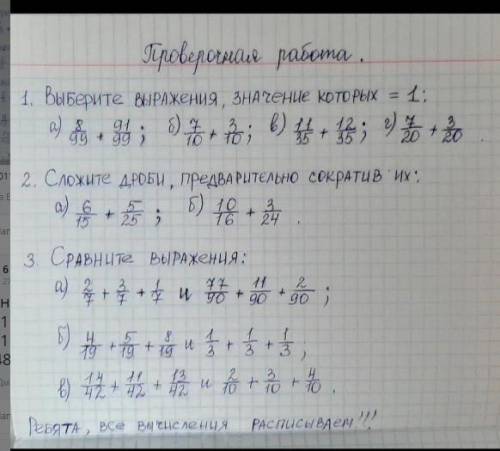 Проверочная работа.
1. Выберите выражения, значение которых = 1:
а) 8/99 + 91/99; б) 7/10 + 3/10; в) 11/35 + 12/35; г) 7/20 + 3/20.
2. Сложите дроби, предварительно сократив их:
а) 6/15 + 5/25; б) 10/16 + 3/24.
3. Сравните выражения:
а) 2/7 + 3/7 + 1/7 и 77/90 + 11/90 + 2/90;
б) 4/19 + 5/19 + 8/19 и 1/3 + 1/3 + 1/3;
в) 14/42 + 11/42 + 13/42 и 2/10 + 3/10 + 4/10.
Ребята, все вычисления расписываем!!!